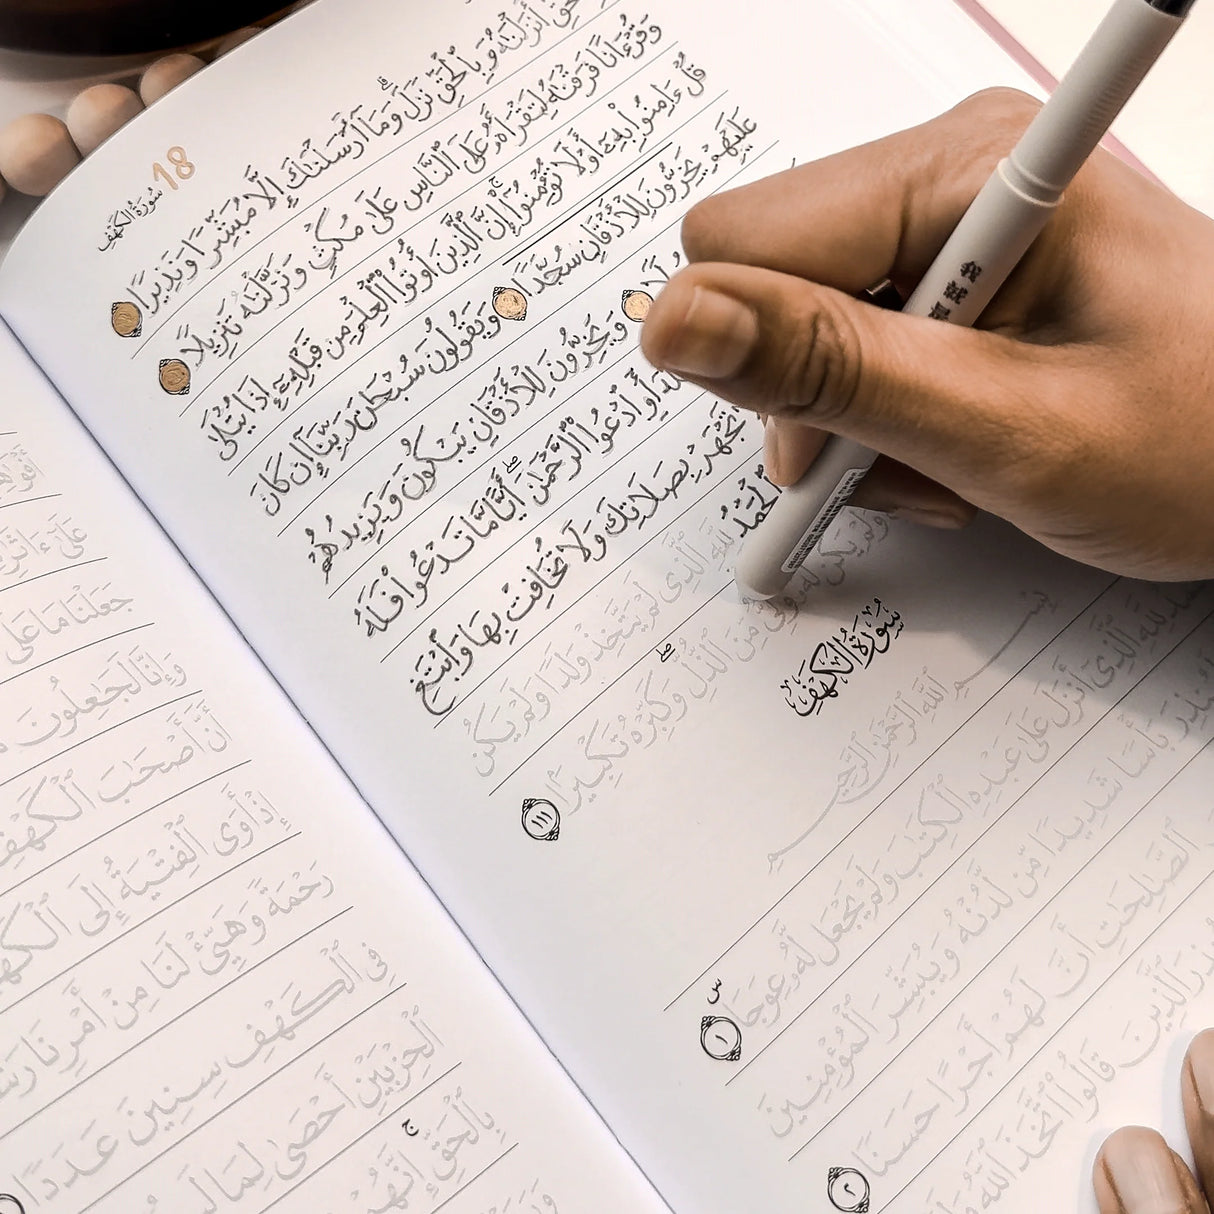 سُورَةُ الكَهْفِ 18
أَنزَلْنَٰهُ وَبِٱلْحَقِّ نَزَلَ ۗ وَمَآ أَرْسَلْنَٰكَ إِلَّا مُبَشِّرًا وَنَذِيرًا
وَقُرْءَانًا فَرَقْنَٰهُ لِتَقْرَأَهُۥ عَلَى ٱلنَّاسِ عَلَىٰ مُكْثٍ وَنَزَّلْنَٰهُ تَنزِيلًا
قُلْ ءَامِنُوا۟ بِهِۦٓ أَوْ لَا تُؤْمِنُوٓا۟ ۚ إِنَّ ٱلَّذِينَ أُوتُوا۟ ٱلْعِلْمَ مِن قَبْلِهِۦٓ إِذَا يُتْلَىٰ
عَلَيْهِمْ يَخِرُّونَ لِلْأَذْقَانِ سُجَّدًا وَيَقُولُونَ سُبْحَٰنَ رَبِّنَآ إِن كَانَ
وَيَخِرُّونَ لِلْأَذْقَانِ يَبْكُونَ وَيَزِيدُهُمْ
أَوِ ٱدْعُوا۟ ٱلرَّحْمَٰنَ ۖ أَيًّا مَّا تَدْعُوا۟ فَلَهُ
تَجْهَرْ بِصَلَاتِكَ وَلَا تُخَافِتْ بِهَا وَٱبْتَغِ
ٱلْحَمْدُ لِلَّهِ ٱلَّذِى لَمْ يَتَّخِذْ وَلَدًا وَلَمْ يَكُن
وَلَمْ يَكُن لَّهُۥ وَلِىٌّ مِّنَ ٱلذُّلِّ ۖ وَكَبِّرْهُ تَكْبِيرًۢا ١١١
سُورَةُ الكَهْفِ
بِسْمِ ٱللَّهِ ٱلرَّحْمَٰنِ ٱلرَّحِيمِ
ٱلْحَمْدُ لِلَّهِ ٱلَّذِىٓ أَنزَلَ عَلَىٰ عَبْدِهِ ٱلْكِتَٰبَ وَلَمْ يَجْعَل لَّهُۥ عِوَجَا ۜ ١
بَأْسًا شَدِيدًا مِّن لَّدُنْهُ وَيُبَشِّرَ ٱلْمُؤْمِنِينَ
ٱلصَّٰلِحَٰتِ أَنَّ لَهُمْ أَجْرًا حَسَنًا ٢
ٱلَّذِينَ قَالُوا۟ ٱتَّخَذَ ٱللَّهُ
عَلَىٰٓ ءَاثَٰرِ
جَعَلْنَا مَا عَلَى
وَإِنَّا لَجَٰعِلُونَ
أَنَّ أَصْحَٰبَ ٱلْكَهْفِ
إِذْ أَوَى ٱلْفِتْيَةُ إِلَى ٱلْكَهْفِ
رَحْمَةً وَهَيِّئْ لَنَا مِنْ أَمْرِنَا
فِى ٱلْكَهْفِ سِنِينَ عَدَدًا
ٱلْحِزْبَيْنِ أَحْصَىٰ لِمَا
بِٱلْحَقِّ ۚ إِنَّهُمْ